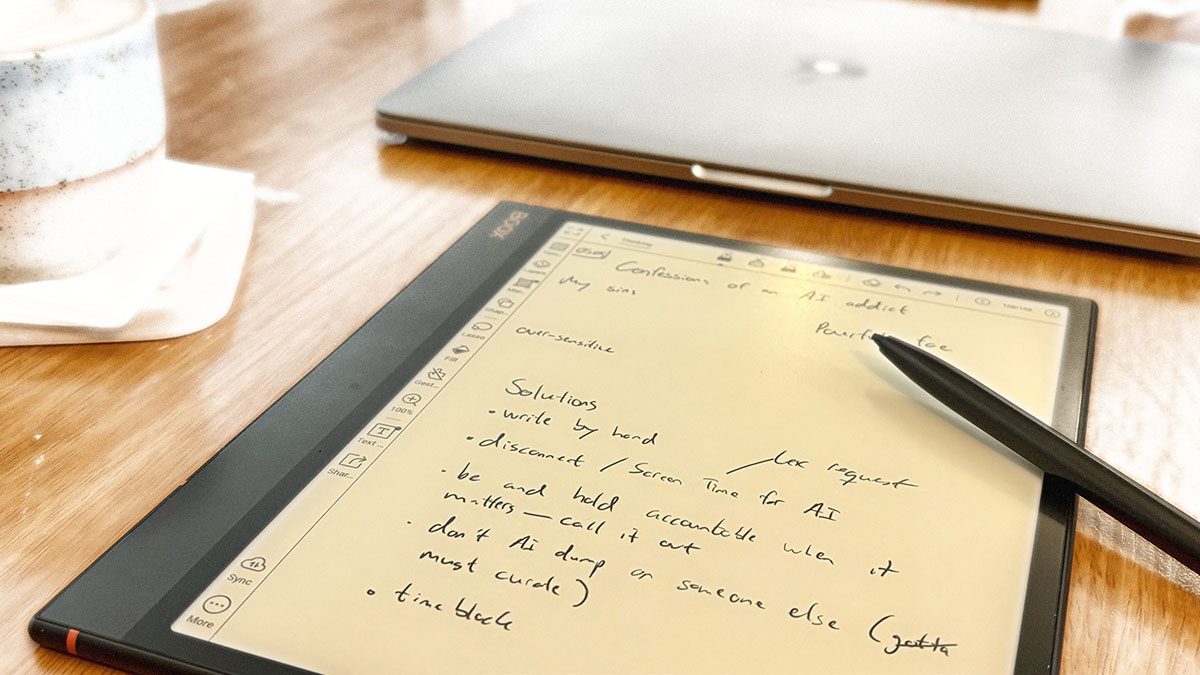 BOOX
Confessions of an AI addict
My sins
over-sensitive
Solutions
• write by hand
• disconnect / Screen Time for AI
request
• be and hold accountable when it
matters — call it out
• don't AI dump on someone else (gotta
must curate)
• time block
Lasso
Fill
Gest...
100%
Text ...
Shar...
Sync
More